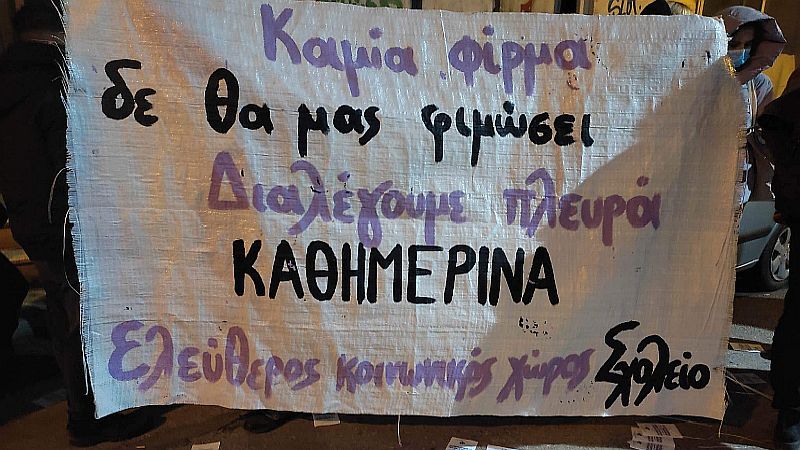 Καμία φίρμα
δε θα μας φιμώσει
Διαλέγουμε πλευρά
ΚΑΘΗΜΕΡΙΝΑ
Ελεύθερος κοινωνικός χώρος Σχολείο